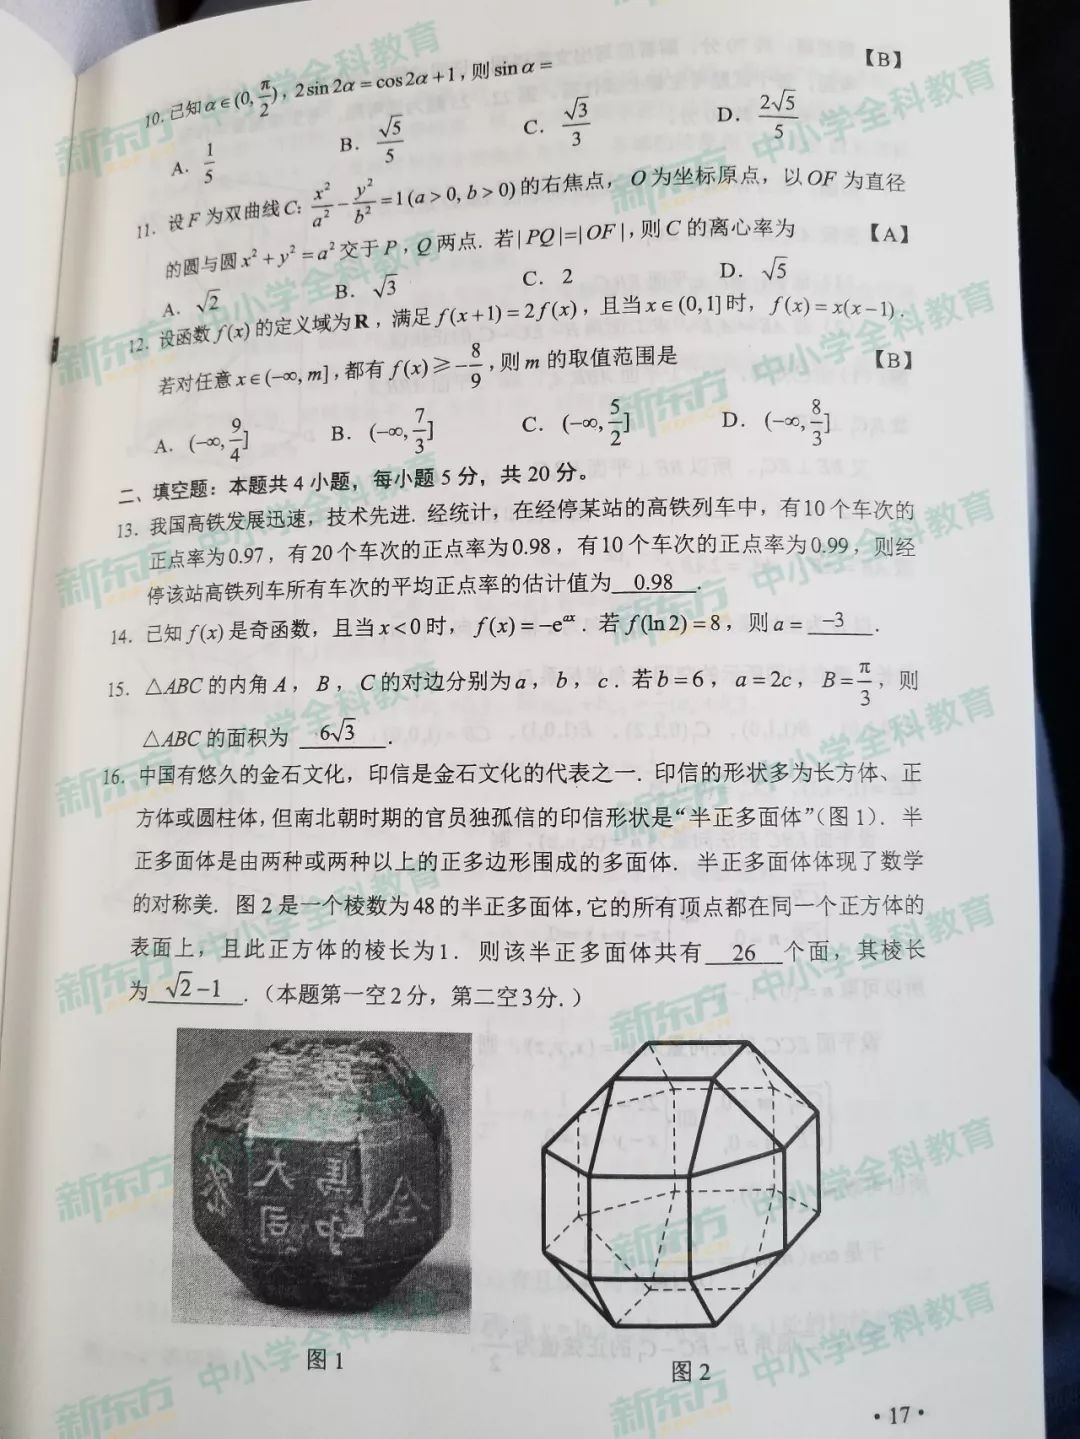 10. 已知α∈(0, π/2), 2sin 2α = cos2α+1, 则 sin α = 【B】
A. 1/5 B. √5/5 C. √3/3 D. 2√5/5
11. 设F为双曲线C: x²/a² − y²/b² = 1(a>0, b>0)的右焦点, O为坐标原点, 以OF为直径
的圆与圆x²+y²=a²交于P, Q两点. 若|PQ|=|OF|, 则C的离心率为 【A】
A. √2 B. √3 C. 2 D. √5
12. 设函数f(x)的定义域为R, 满足f(x+1)=2f(x), 且当x∈(0,1]时, f(x)=x(x−1).
若对任意x∈(−∞, m], 都有f(x)≥−8/9, 则m的取值范围是 【B】
A. (−∞, 9/4] B. (−∞, 7/3] C. (−∞, 5/2] D. (−∞, 8/3]
二、填空题: 本题共4小题, 每小题5分, 共20分。
13. 我国高铁发展迅速, 技术先进. 经统计, 在经停某站的高铁列车中, 有10个车次的
正点率为0.97, 有20个车次的正点率为0.98, 有10个车次的正点率为0.99, 则经
停该站高铁列车所有车次的平均正点率的估计值为 0.98 .
14. 已知f(x)是奇函数, 且当x<0时, f(x)=−e^{ax}. 若f(ln2)=8, 则a= −3 .
15. △ABC的内角A, B, C的对边分别为a, b, c. 若b=6, a=2c, B=π/3, 则
△ABC的面积为 6√3 .
16. 中国有悠久的金石文化, 印信是金石文化的代表之一. 印信的形状多为长方体、正
方体或圆柱体, 但南北朝时期的官员独孤信的印信形状是“半正多面体”(图1). 半
正多面体是由两种或两种以上的正多边形围成的多面体. 半正多面体体现了数学
的对称美. 图2是一个棱数为48的半正多面体, 它的所有顶点都在同一个正方体的
表面上, 且此正方体的棱长为1. 则该半正多面体共有 26 个面, 其棱长
为 √2−1 . (本题第一空2分, 第二空3分.)
图1
图2
·17·
新东方 中小学全科教育